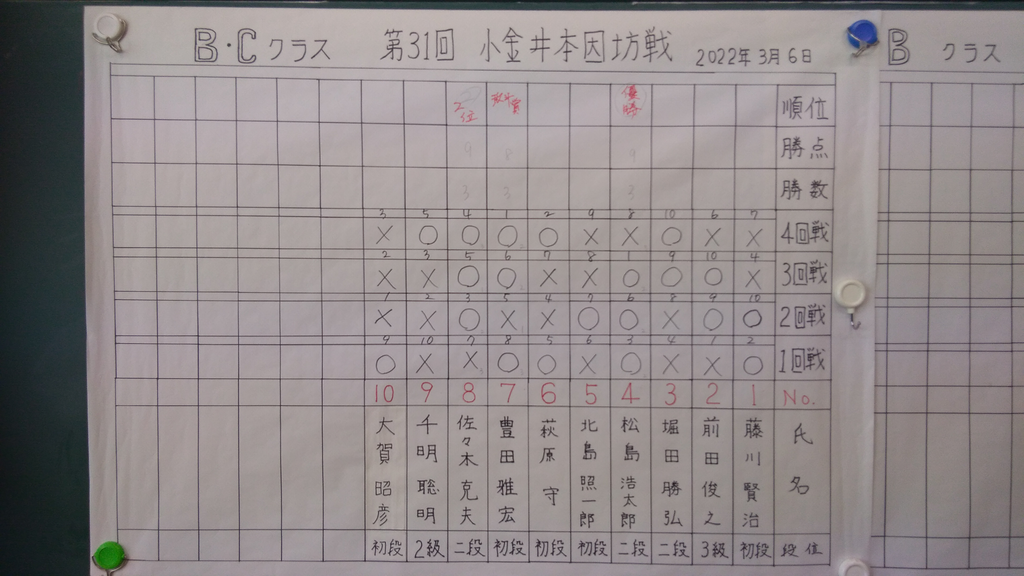 B・Cクラス 第31回 小金井本因坊戦 2022年3月6日
B クラス
順位 優勝 敢斗賞 2位
勝点 9 8 9
勝数 3 3 3
7 6 10 8 9 2 1 4 5 3
4回戦 × × ○ × × ○ ○ ○ ○ ×
4 10 9 1 8 7 6 5 3 2
3回戦 × ○ ○ ○ × × ○ ○ × ×
10 9 8 6 7 4 5 3 2 1
2回戦 ○ ○ × ○ ○ × × ○ × ×
2 1 4 3 6 5 8 7 10 9
1回戦 ○ × × ○ × ○ ○ × × ○
No. 1 2 3 4 5 6 7 8 9 10
氏名
藤川賢治
前田俊之
堀田勝弘
松島浩太郎
北島照一郎
萩原守
豊田雅宏
佐々木克夫
千明聡明
大賀昭彦
段位 初段 3級 二段 二段 初段 初段 初段 二段 2級 初段